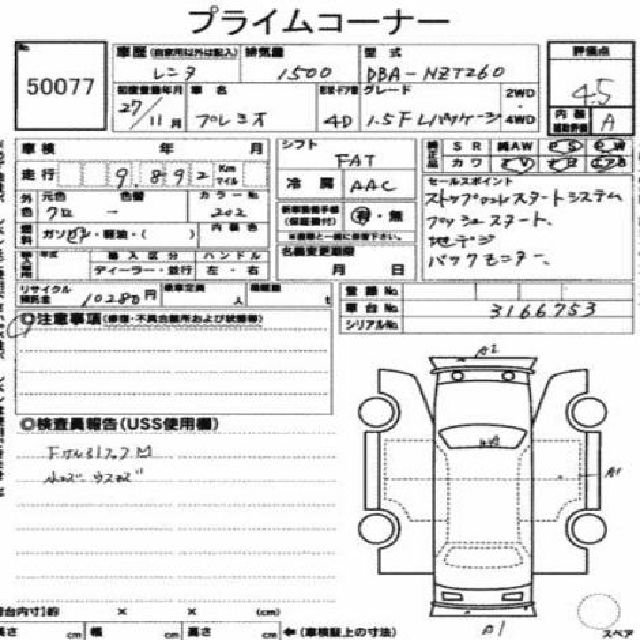 プライムコーナー
No.
50077
車歴(自家用以外は記入) 排気量 型式 評価点
レンタ 1500 DBA-NZT260 4.5
初度登録年月 車名 形状・ドア数 グレード 2WD
27/11月 プレミオ 4D 1.5F Lパッケージ 4WD
内装 補助評価 A
車検 年 月
シフト
FAT
純正品 SR 純AW PS PW
カワ
走行 9,892 Km マイル
冷房 AAC
セールスポイント
外色 元色 色替 カラーNo.
クロ - 202
ストップアンドスタートシステム
プッシュスタート、
地デジ
バックモニター、
新車整備手帳(保証書付) 有・無
燃料 ガソリン・軽油・( ) 内装色
年式 輸入区分 ハンドル
ディーラー・並行 左・右
名義変更期限
月 日
リサイクル預託金 10280円 乗車定員 人 積載量 t
登録No.
車台No. 3166753
シリアルNo.
◎注意事項(修復・不具合箇所および状態等)
◎検査員報告(USS使用欄)
A2
A1
A1
台内寸)約 × × (cm)
高さ cm 幅 cm 高さ cm ←(車検証上の寸法)
スペア